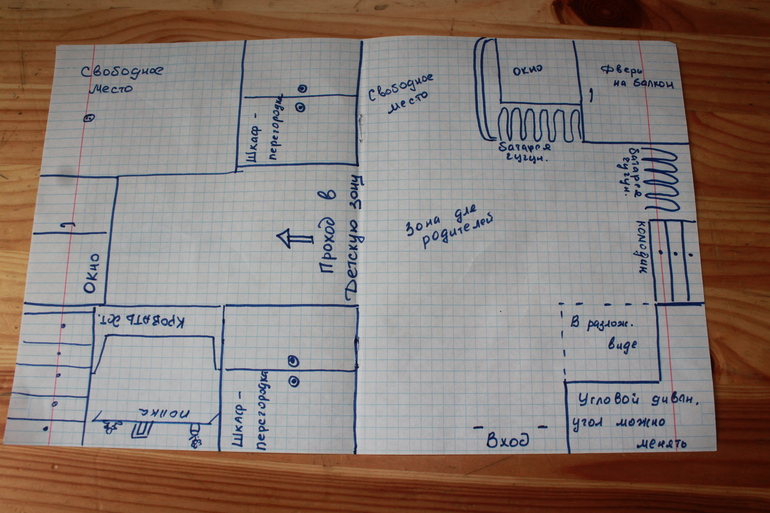 Свободное
место
Шкаф -
перегородка
Свободное
место
окно
Дверь
на балкон
батарея
чугун.
батарея
чугун.
Проход в
Детскую зону
Зона для
родителей
комодик
окно
кровать 2эт.
полка
Шкаф -
перегородка
В разлож.
виде
Угловой диван,
угол можно
менять
Вход